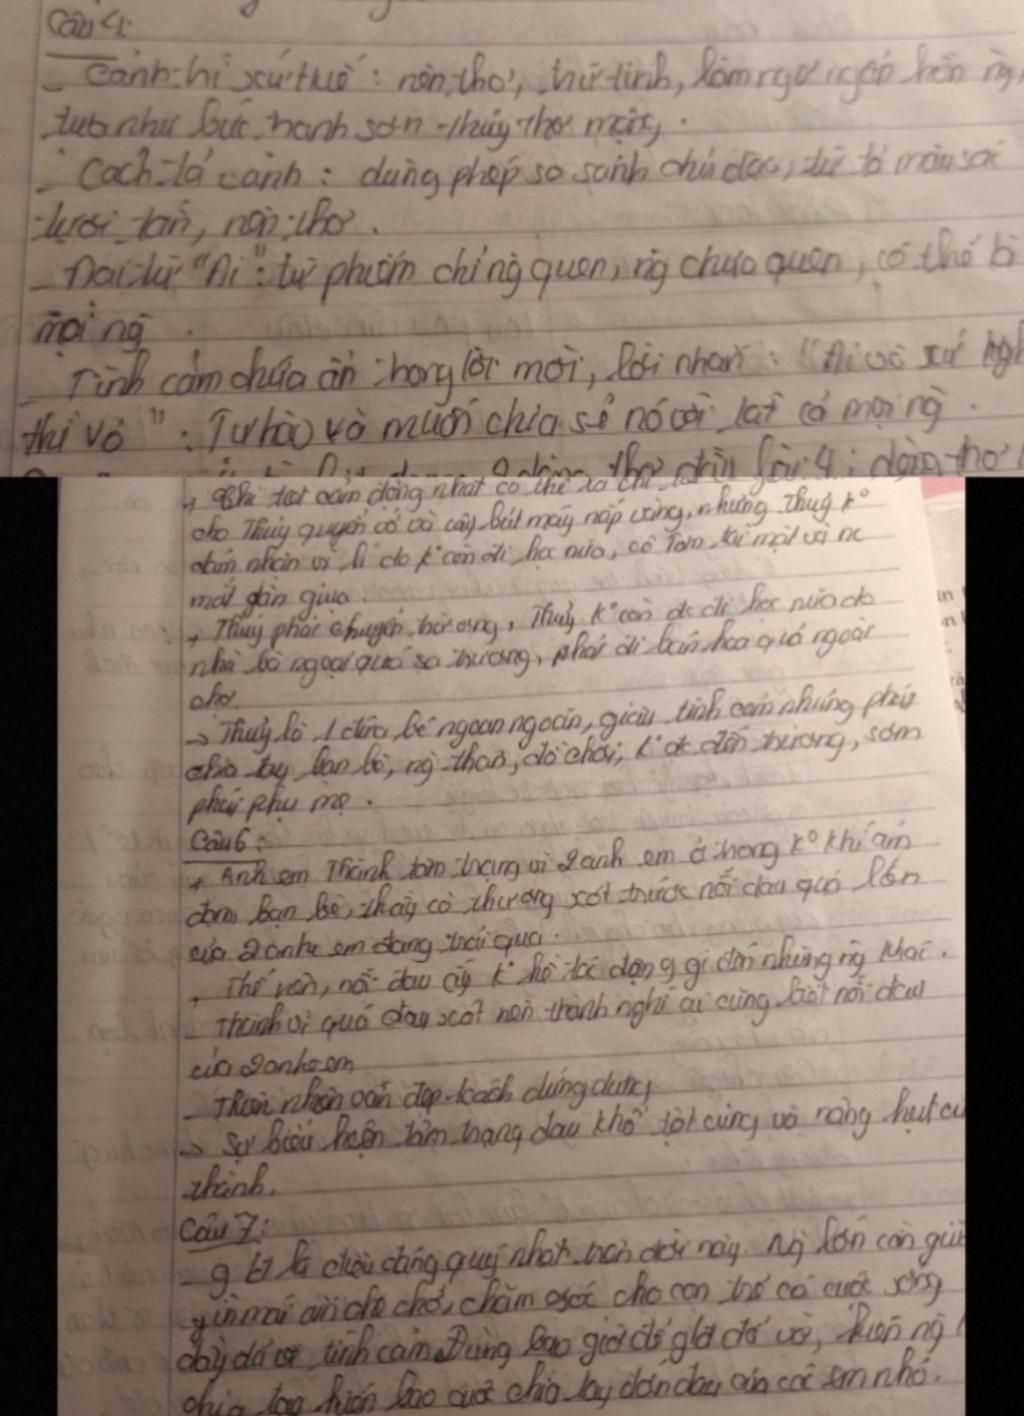 Câu 4:
- Cảnh trí xứ Huế: nên thơ, trữ tình, làm ngơ ngẩn hồn ng
tựa như bức tranh sơn thủy thơ mộng.
- Cách tả cảnh: dùng phép so sánh chủ đạo, từ tả màu sắc
tươi tắn, nên thơ.
- Đại từ "Ai": từ phiếm chỉ ng quen, ng chưa quen, có thể là
mọi ng.
- Tình cảm chứa ẩn trong lời mời, lời nhắn: "Ai vô xứ
thì vô": Tự hào và muốn chia sẻ nó với tất cả mọi ng.
dòng thơ
+ Chi tiết cảm động nhất có thể là chi tiết
cho Thủy quyển sổ và cây bút máy nắp vàng, nhưng Thủy k°
dám nhận vì lí do k° còn đi học nữa, cô Tâm tái mặt và nc
mắt giàn giụa.
+ Thủy phải chuyển trường, Thủy k° còn đc đi học nữa do
nhà bà ngoại quá xa trường, phải đi bán hoa quả ngoài
chợ.
→ Thủy là 1 đứa bé ngoan ngoãn, giàu tình cảm nhưng phải
chia tay bạn bè, ng thân, đồ chơi, k° đc đến trường, sớm
phải phụ mẹ.
Câu 6:
+ Anh em Thành tâm trạng vì 2 anh em ở trong k° khí ảm
đạm bạn bè, thầy cô thương xót trước nỗi đau quá lớn
của 2 anh em đang trải qua.
+ Thế nên, nỗi đau ấy k° hề tác động gì đến những ng khác.
- Thành vì quá đau xót nên thành nghĩ ai cũng biết nỗi đau
của 2 anh em
- Thiên nhiên vẫn đẹp cách dửng dưng
→ Sự biểu hiện tâm trạng đau khổ tột cùng và nặng hụt
thành.
Câu 7:
- g đ là điều đáng quý nhất trên đời này. Ng lớn cần giữ
gìn mái ấm che chở, chăm sóc cho con trẻ có cuộc sống
đầy đủ về tình cảm. Đừng bao giờ để g đ đổ vỡ,
chia tay khiến bao cuộc chia tay đớn đau của các em nhỏ.